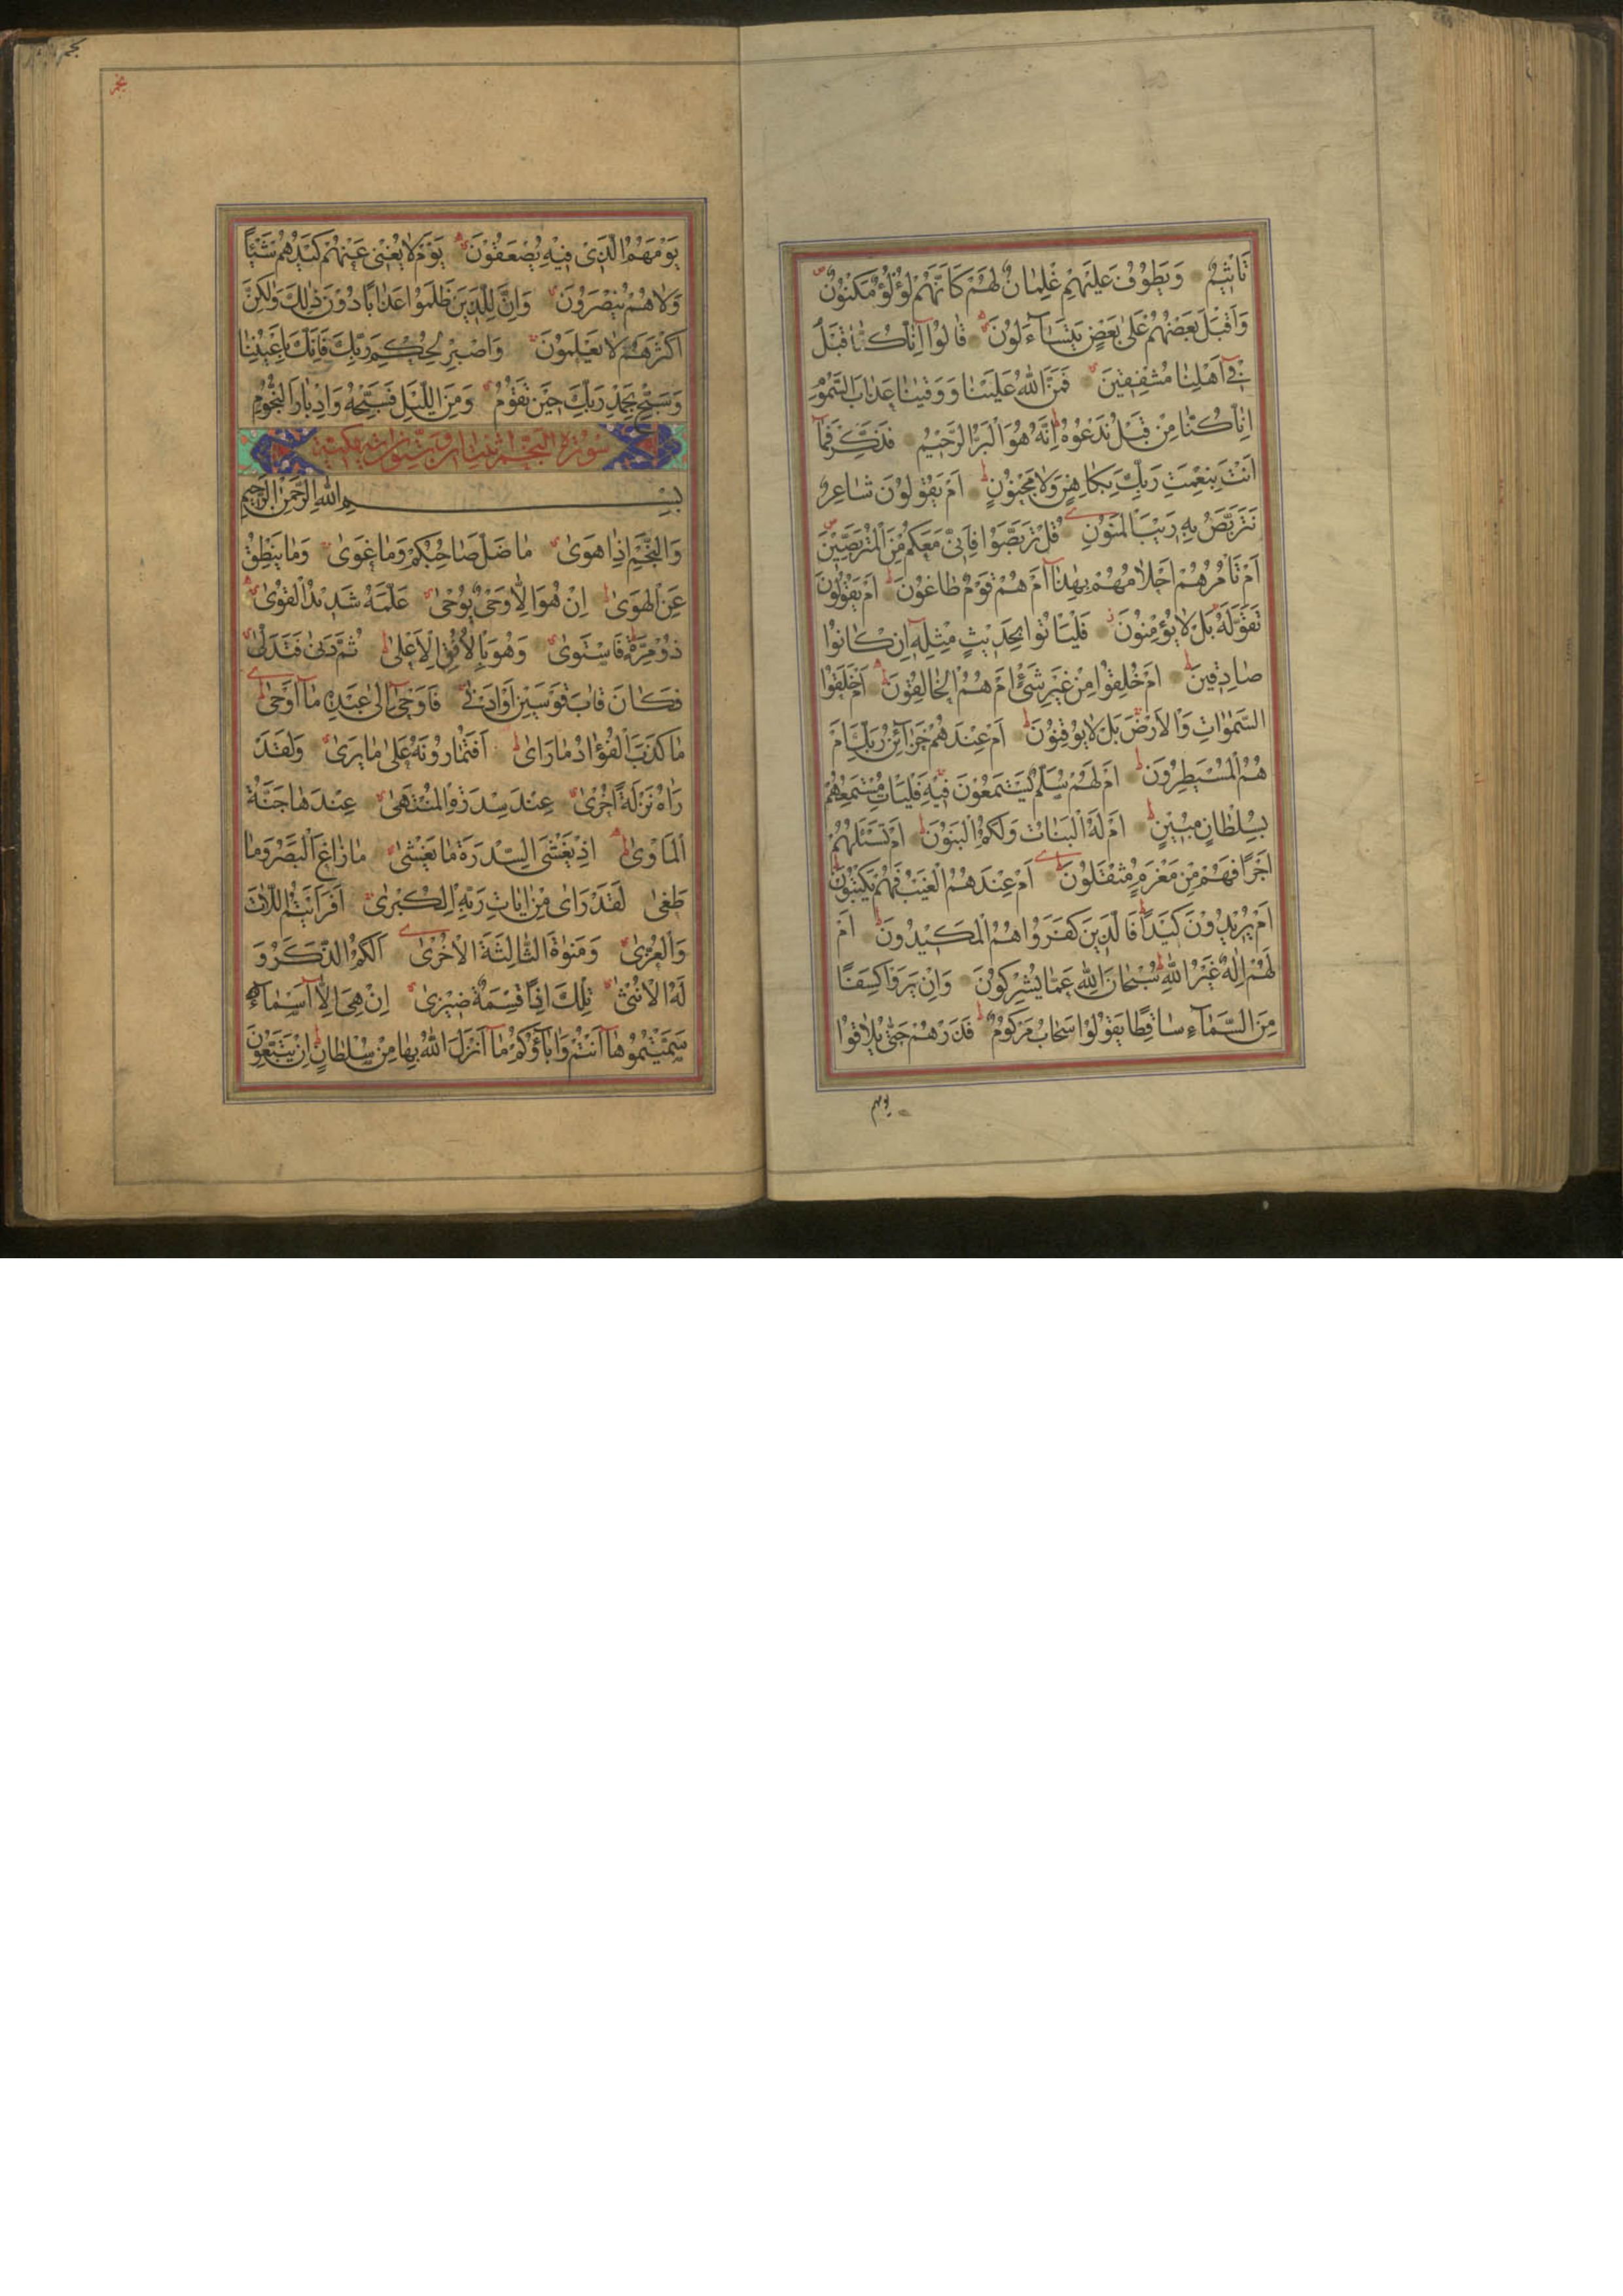 تَأْثِيمٌ وَيَطُوفُ عَلَيْهِمْ غِلْمَانٌ لَهُمْ كَأَنَّهُمْ لُؤْلُؤٌ مَكْنُونٌ
وَأَقْبَلَ بَعْضُهُمْ عَلَىٰ بَعْضٍ يَتَسَاءَلُونَ قَالُوا إِنَّا كُنَّا قَبْلُ
فِي أَهْلِنَا مُشْفِقِينَ فَمَنَّ اللهُ عَلَيْنَا وَوَقَيْنَا عَذَابَ السَّمُومِ
إِنَّا كُنَّا مِنْ قَبْلُ نَدْعُوهُ إِنَّهُ هُوَ الْبَرُّ الرَّحِيمُ فَذَكِّرْ فَمَا
أَنْتَ بِنِعْمَتِ رَبِّكَ بِكَاهِنٍ وَلَا مَجْنُونٍ أَمْ يَقُولُونَ شَاعِرٌ
نَتَرَبَّصُ بِهِ رَيْبَ الْمَنُونِ قُلْ تَرَبَّصُوا فَإِنِّي مَعَكُمْ مِنَ الْمُتَرَبِّصِينَ
أَمْ تَأْمُرُهُمْ أَحْلَامُهُمْ بِهٰذَا أَمْ هُمْ قَوْمٌ طَاغُونَ أَمْ يَقُولُونَ
تَقَوَّلَهُ بَلْ لَا يُؤْمِنُونَ فَلْيَأْتُوا بِحَدِيثٍ مِثْلِهِ إِنْ كَانُوا
صَادِقِينَ أَمْ خُلِقُوا مِنْ غَيْرِ شَيْءٍ أَمْ هُمُ الْخَالِقُونَ أَمْ خَلَقُوا
السَّمٰوَاتِ وَالْأَرْضَ بَلْ لَا يُوقِنُونَ أَمْ عِنْدَهُمْ خَزَائِنُ رَبِّكَ أَمْ
هُمُ الْمُسَيْطِرُونَ أَمْ لَهُمْ سُلَّمٌ يَسْتَمِعُونَ فِيهِ فَلْيَأْتِ مُسْتَمِعُهُمْ
بِسُلْطَانٍ مُبِينٍ أَمْ لَهُ الْبَنَاتُ وَلَكُمُ الْبَنُونَ أَمْ تَسْئَلُهُمْ
أَجْرًا فَهُمْ مِنْ مَغْرَمٍ مُثْقَلُونَ أَمْ عِنْدَهُمُ الْغَيْبُ فَهُمْ يَكْتُبُونَ
أَمْ يُرِيدُونَ كَيْدًا فَالَّذِينَ كَفَرُوا هُمُ الْمَكِيدُونَ أَمْ
لَهُمْ إِلٰهٌ غَيْرُ اللهِ سُبْحَانَ اللهِ عَمَّا يُشْرِكُونَ وَإِنْ يَرَوْا كِسْفًا
مِنَ السَّمَاءِ سَاقِطًا يَقُولُوا سَحَابٌ مَرْكُومٌ فَذَرْهُمْ حَتّٰى يُلَاقُوا
يومهم
نجم
يَوْمَهُمُ الَّذِي فِيهِ يُصْعَقُونَ يَوْمَ لَا يُغْنِي عَنْهُمْ كَيْدُهُمْ شَيْئًا
وَلَا هُمْ يُنْصَرُونَ وَإِنَّ لِلَّذِينَ ظَلَمُوا عَذَابًا دُونَ ذٰلِكَ وَلٰكِنَّ
أَكْثَرَهُمْ لَا يَعْلَمُونَ وَاصْبِرْ لِحُكْمِ رَبِّكَ فَإِنَّكَ بِأَعْيُنِنَا
وَسَبِّحْ بِحَمْدِ رَبِّكَ حِينَ تَقُومُ وَمِنَ اللَّيْلِ فَسَبِّحْهُ وَإِدْبَارَ النُّجُومِ
سورة النجم اثنتان وستون اية مكية
بِسْمِ اللهِ الرَّحْمٰنِ الرَّحِيمِ
وَالنَّجْمِ إِذَا هَوَىٰ مَا ضَلَّ صَاحِبُكُمْ وَمَا غَوَىٰ وَمَا يَنْطِقُ
عَنِ الْهَوَىٰ إِنْ هُوَ إِلَّا وَحْيٌ يُوحَىٰ عَلَّمَهُ شَدِيدُ الْقُوَىٰ
ذُو مِرَّةٍ فَاسْتَوَىٰ وَهُوَ بِالْأُفُقِ الْأَعْلَىٰ ثُمَّ دَنَىٰ فَتَدَلَّىٰ
فَكَانَ قَابَ قَوْسَيْنِ أَوْ أَدْنَىٰ فَأَوْحَىٰ إِلَىٰ عَبْدِهِ مَا أَوْحَىٰ
مَا كَذَبَ الْفُؤَادُ مَا رَأَىٰ أَفَتُمَارُونَهُ عَلَىٰ مَا يَرَىٰ وَلَقَدْ
رَاٰهُ نَزْلَةً أُخْرَىٰ عِنْدَ سِدْرَةِ الْمُنْتَهَىٰ عِنْدَهَا جَنَّةُ
الْمَأْوَىٰ إِذْ يَغْشَى السِّدْرَةَ مَا يَغْشَىٰ مَا زَاغَ الْبَصَرُ وَمَا
طَغَىٰ لَقَدْ رَأَىٰ مِنْ اٰيَاتِ رَبِّهِ الْكُبْرَىٰ أَفَرَأَيْتُمُ اللَّاتَ
وَالْعُزَّىٰ وَمَنٰوةَ الثَّالِثَةَ الْأُخْرَىٰ أَلَكُمُ الذَّكَرُ وَ
لَهُ الْأُنْثَىٰ تِلْكَ إِذًا قِسْمَةٌ ضِيزَىٰ إِنْ هِيَ إِلَّا أَسْمَاءٌ
سَمَّيْتُمُوهَا أَنْتُمْ وَاٰبَاؤُكُمْ مَا أَنْزَلَ اللهُ بِهَا مِنْ سُلْطَانٍ إِنْ يَتَّبِعُونَ